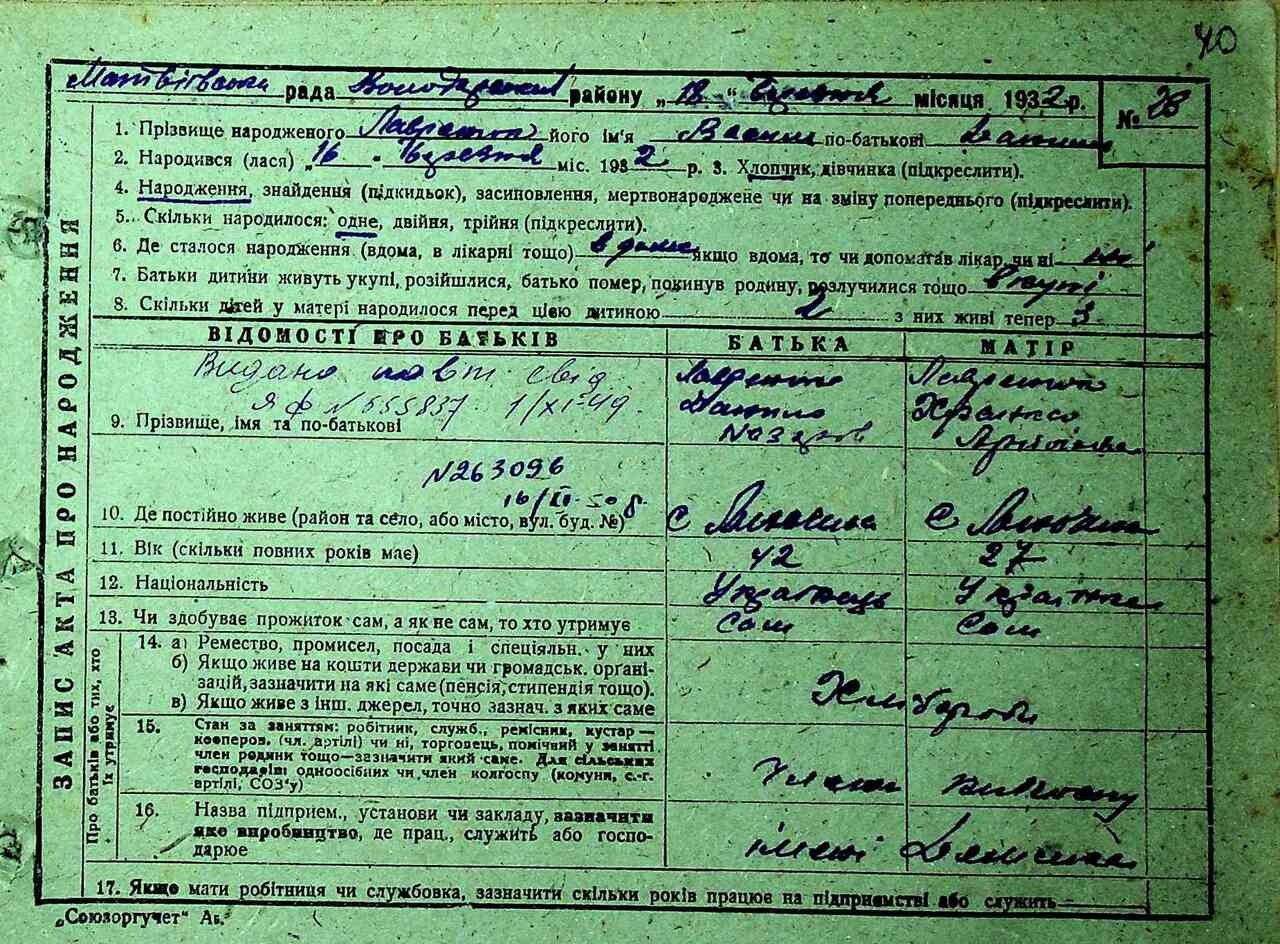 40
рада Володарського району „18“ вересня місяця 1932 р.
№ 28
1. Прізвище народженого його ім'я Василь по-батькові
2. Народився (лася) „16 вересня міс. 1932 р. 3. Хлопчик, дівчинка (підкреслити).
4. Народження, знайдення (підкидьок), засиновлення, мертвонароджене чи на зміну попереднього (підкреслити).
5. Скільки народилося: одне, двійня, трійня (підкреслити).
6. Де сталося народження (вдома, в лікарні тощо) вдома якщо вдома, то чи допомагав лікар, чи ні ні
7. Батьки дитини живуть укупі, розійшлися, батько помер, покинув родину, розлучилися тощо вкупі
8. Скільки дітей у матері народилося перед цією дитиною 2 з них живі тепер 3
ЗАПИС АКТА ПРО НАРОДЖЕННЯ
ВІДОМОСТІ ПРО БАТЬКІВ БАТЬКА МАТІР
Видано повт свід
ЯФ N 655837 1/XI-49.
9. Прізвище, імя та по-батькові Данило
N263096
10. Де постійно живе (район та село, або місто, вул. буд. №) с с
11. Вік (скільки повних років має) 42 27
12. Національність Українець Українка
13. Чи здобуває прожиток сам, а як не сам, то хто утримує Сам Сам
Про батьків або тих, хто їх утримує
14. а) Ремество, промисел, посада і спеціяльн. у них
б) Якщо живе на кошти держави чи громадськ. органі-
зацій, зазначити на які саме (пенсія, стипендія тощо).
в) Якщо живе з інш. джерел, точно зазнач. з яких саме
Хлібороби
15. Стан за заняттям: робітник, служб., ремісник, кустар—
кооперов. (чл. артілі) чи ні, торговець, помічний у занятті
член родини тощо—зазначити який саме. Для сільських
господарів: одноосібних чи член колгоспу (комуни, с.-г.
артілі, СОЗ'у)
Члени колгоспу
16. Назва підприєм., установи чи закладу, зазначити
яке виробництво, де прац., служить або госпо-
дарює
імені
17. Якщо мати робітниця чи службовка, зазначити скільки років працює на підприємстві або служить
„Союзоргучет“